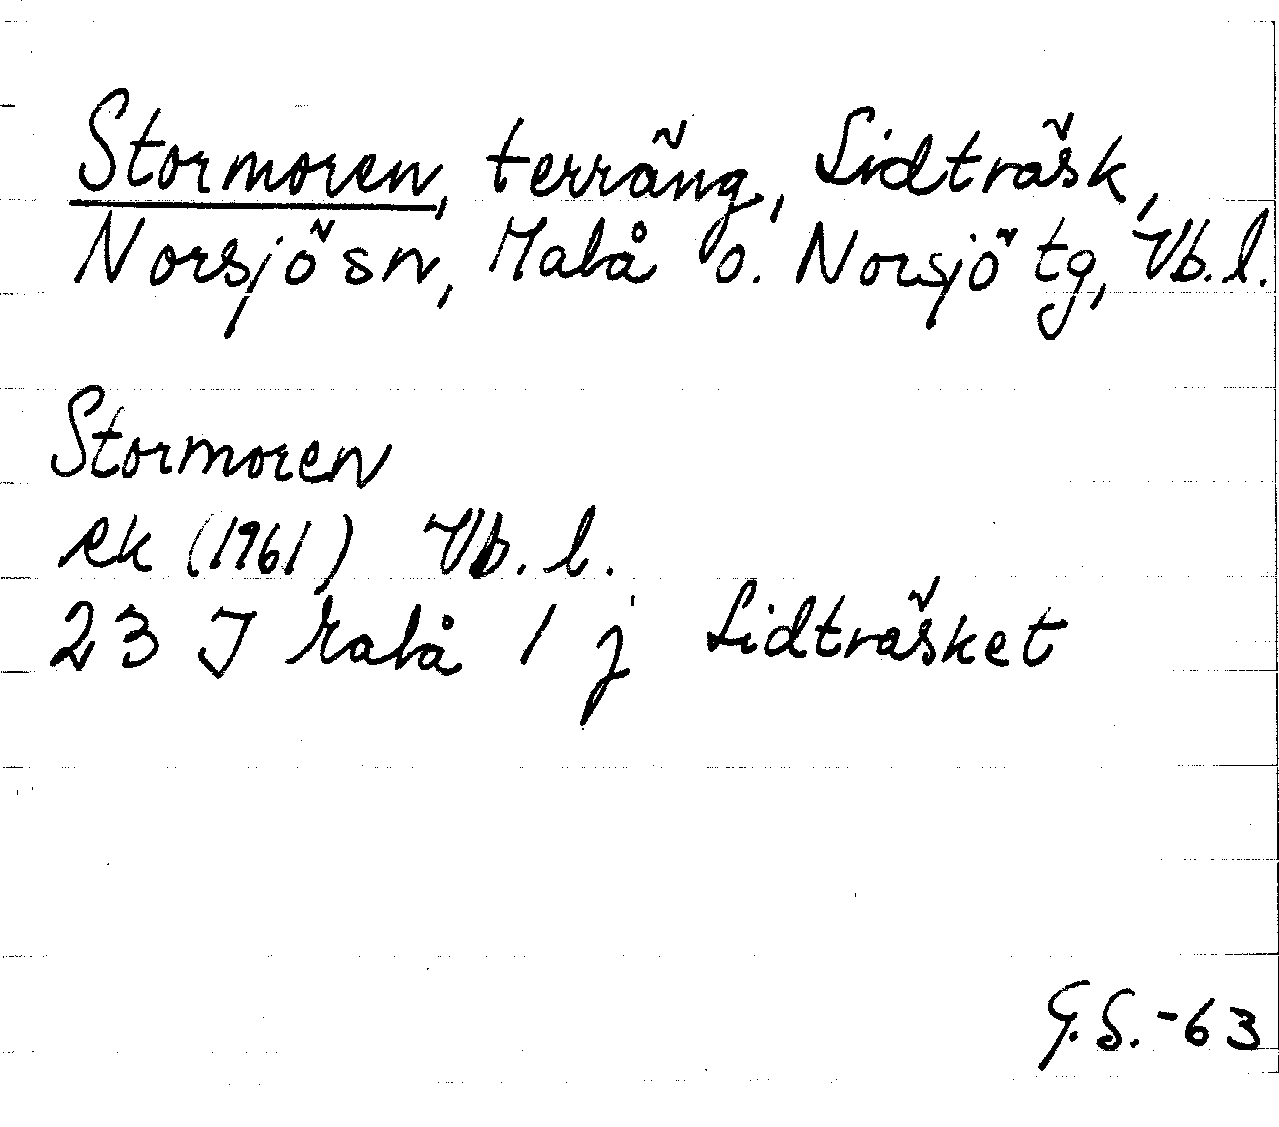 Stormoren, terräng, Lidträsk,
Norsjö sn, Malå o. Norsjö tg, Vb. l.
Stormoren
ek (1961) Vb. l.
23 J Malå 1 j Lidträsket
G.S.-63